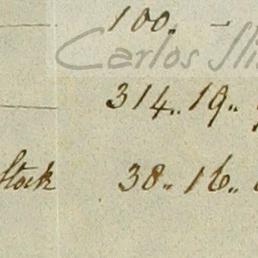 100.. -
Carlos
314.. 19..
Stock 38.. 16..